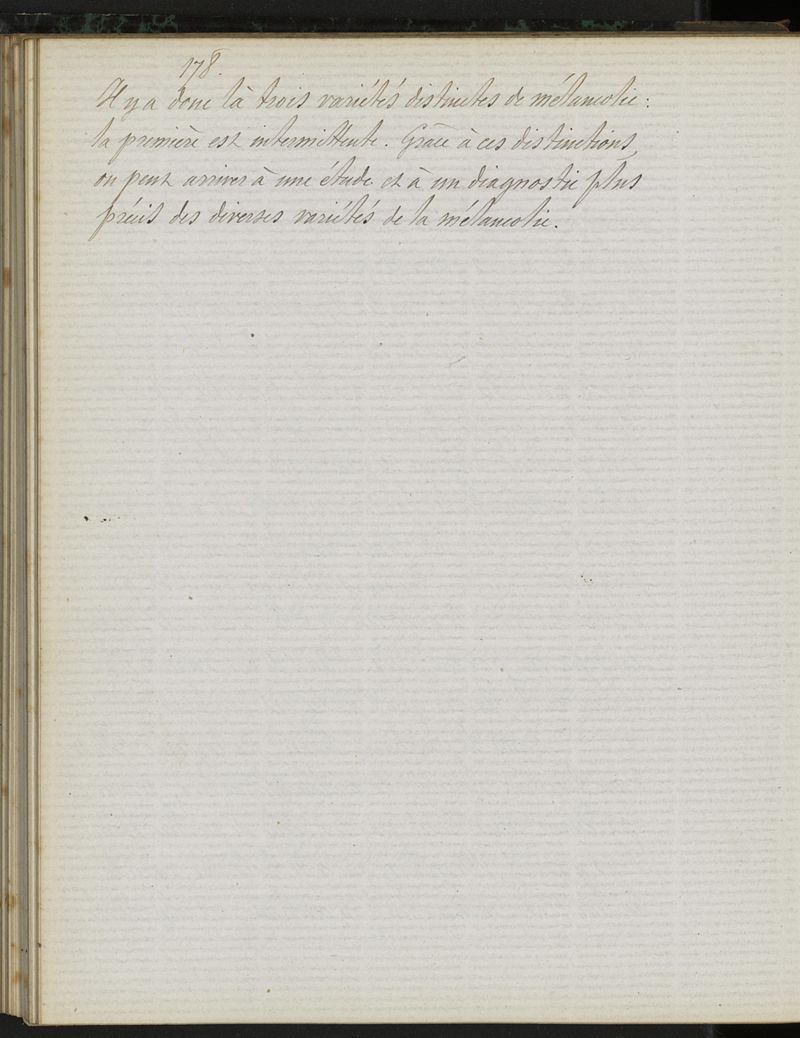 178.
Il y a donc là trois variétés distinctes de mélancolie :
la première est intermittente. Grâce à ces distinctions,
on peut arriver à une étude et à un diagnostic plus
précis des diverses variétés de la mélancolie.